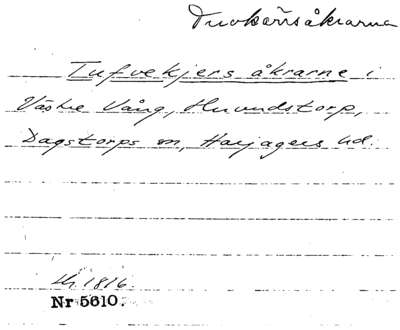 Tuvkärsåkrarna
Tufvekjers åkrarne i
Västre Vång, Huvudstorp,
Dagstorps sn, Harjagers hd.
Nr 5610.